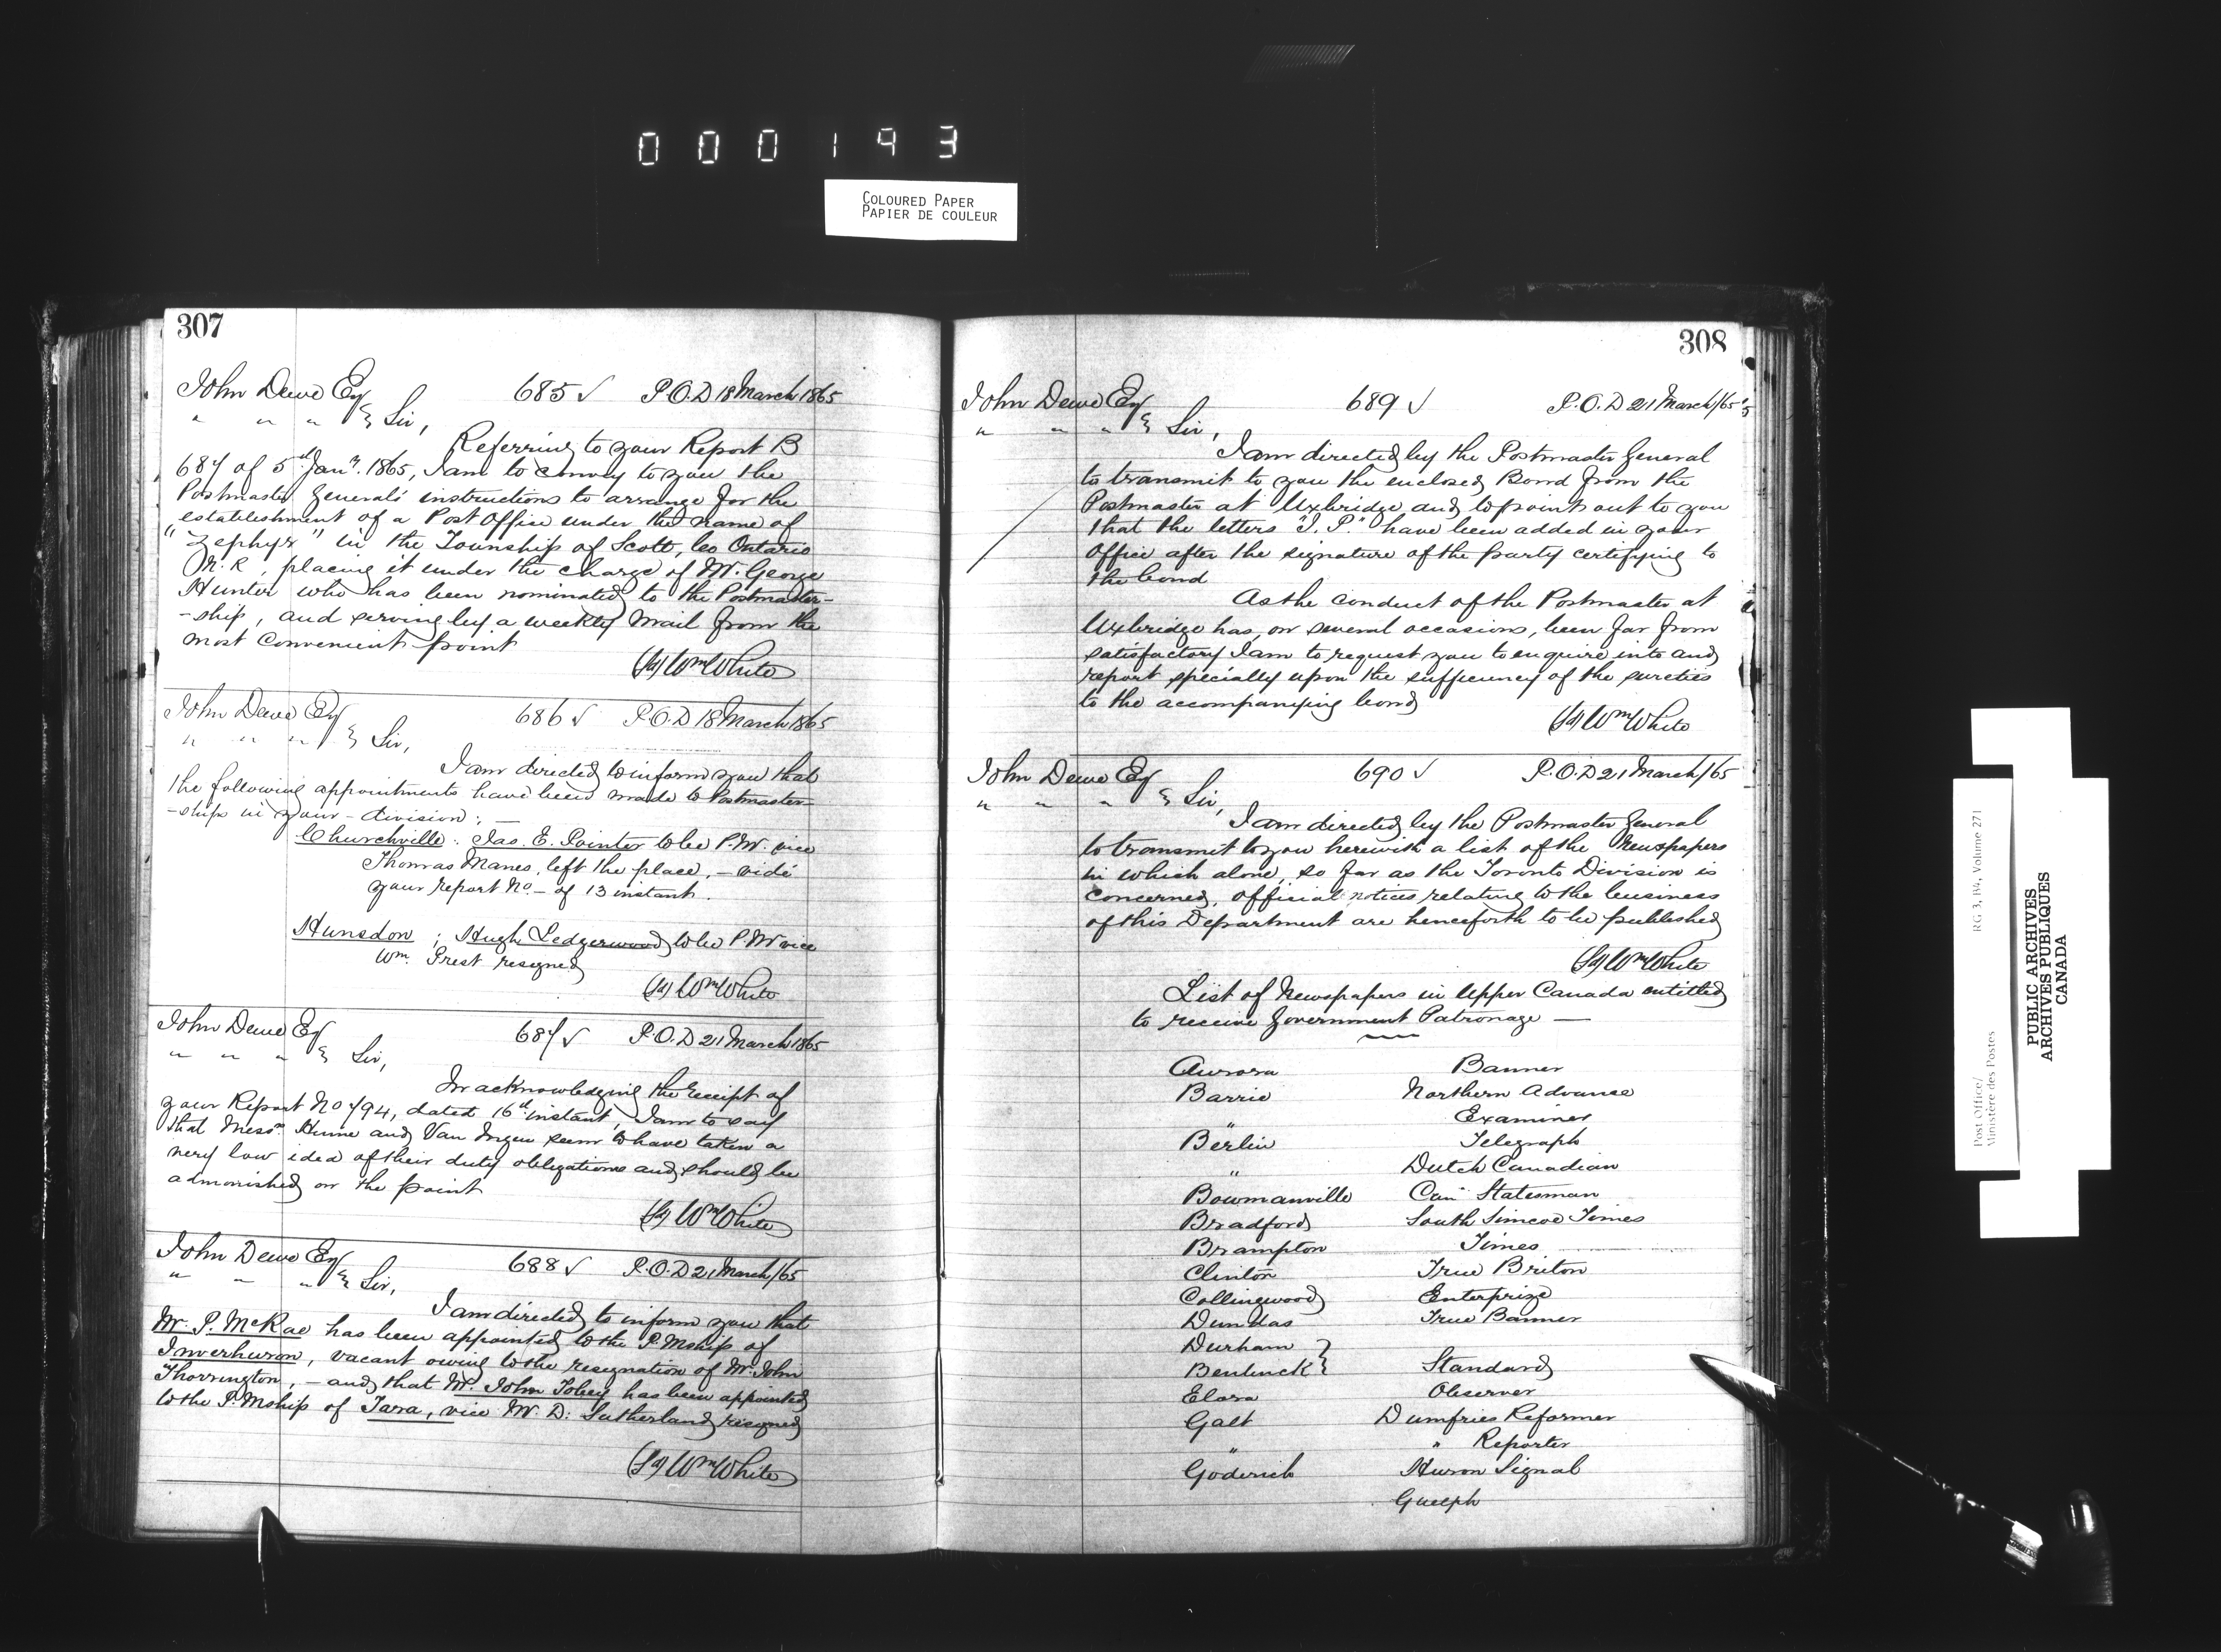 000193
COLOURED PAPER
PAPIER DE COULEUR
307
John Dewe Esq 685 ✓ P.O.D 18 March 1865
" " " & Sir,
Referring to your Report B
687 of 5th Jany. 1865, I am to convey to you the
Postmaster General's instructions to arrange for the
establishment of a Post Office under the name of
"Zephyr" in the Township of Scott, Co Ontario
N.R, placing it under the charge of Mr. George
Hunter who has been nominated to the Postmaster-
-ship, and serving by a weekly mail from the
most convenient point
(Sg) Wm White
John Dewe Esq 686 ✓ P.O.D 18 March 1865
" " " & Sir,
I am directed to inform you that
the following appointments have been made to Postmaster-
-ships in your division: —
Churchville: Jas. E. Pointer to be P.M. vice
Thomas Manes, left the place, – vide
your report No – of 13 instant.
Hunsdon; Hugh Ledgerwood to be P.M vice
Wm. Prest resigned
(Sg) Wm White
John Dewe Esq 687 ✓ P.O.D 21 March 1865
" " " & Sir,
In acknowledging the receipt of
your Report No 794, dated 16th instant, I am to say
that Messrs. Hume and Van Ingen seem to have taken a
very low idea of their duty obligations and should be
admonished on the point
(Sg) Wm White
John Dewe Esq 688 ✓ P.O.D 21 March/65
" " " & Sir,
I am directed to inform you that
Mr. P. McRae has been appointed to the P.Mship of
Inverhuron, vacant owing to the resignation of Mr. John
Thorrington, – and that Mr. John Tobey has been appointed
to the P.Mship of Tara, vice Mr. D: Sutherland resigned
(Sg) Wm White
308
John Dewe Esq 689 ✓ P.O.D 21 March/65
" " " & Sir,
I am directed by the Postmaster General
to transmit to you the enclosed Bond from the
Postmaster at Uxbridge and to point out to you
that the letters "J.P." have been added in your
Office after the signature of the party certifying to
the bond
As the conduct of the Postmaster at
Uxbridge has, on several occasions, been far from
satisfactory I am to request you to enquire into and
report specially upon the sufficiency of the sureties
to the accompanying bond
(Sg) Wm White
John Dewe Esq 690 ✓ P.O.D 21 March/65
" " " & Sir,
I am directed by the Postmaster General
to transmit to you herewith a list of the Newspapers
in which alone, so far as the Toronto Division is
concerned, official notices relating to the business
of this Department are henceforth to be published
(Sg) Wm White
List of Newspapers in Upper Canada entitled
to receive Government Patronage —
Aurora Banner
Barrie Northern Advance
" Examiner
Berlin Telegraph
" Dutch Canadian
Bowmanville Can Statesman
Bradford South Simcoe Times
Brampton Times
Clinton True Briton
Collingwood Enterprize
Dundas True Banner
Durham }
Bentinck } Standard
Elora Observer
Galt Dumfries Reformer
" " Reporter
Goderich Huron Signal
Guelph
Post Office/ RG 3, B4, Volume 271
Ministère des Postes
PUBLIC ARCHIVES
ARCHIVES PUBLIQUES
CANADA